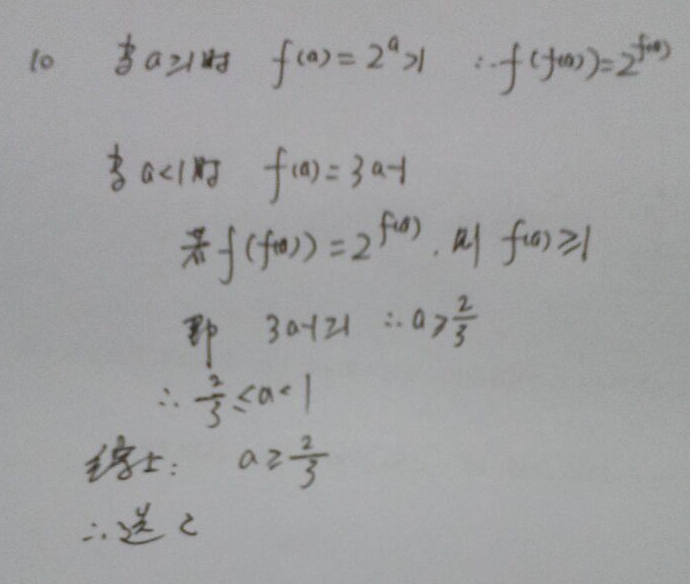 10 当a≥1时 f(a)=2^a>1 ∴f(f(a))=2^f(a)
当a<1时 f(a)=3a-1
若f(f(a))=2^f(a). 则 f(a)≥1
即 3a-1≥1 ∴a≥2/3
∴ 2/3≤a<1
综上: a≥2/3
∴选C